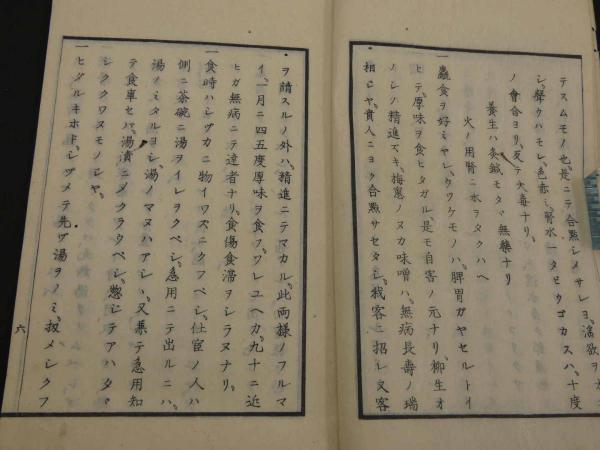 テスムモノ也是ニテ合點シメサレヨ淫欲ヲカ
シ聲クハモレ色赤シ腎水一タビウゴカスハ十度
ノ會合ヨリ反テ大毒ナリ
養生ハ灸鍼モタヾ無藥ナリ
火ノ用腎ニ水ヲタクハヘ
一蟲食ヲ好ミヤレウツケモノハ脾胃ガヤセルトイ
ヒテ厚味ヲ食ヒタガル是モ自害ノ元ナリ柳生オ
ノシノ精進ズキ梅惠ノヌカ味噌ハ無病長壽ノ瑞
相ヒヤ貴人ニヨク合點サセタシ我客ニ招レ又客
ヲ請スルノ外ハ精進ニテマカル此両様ノフルマ
イ一月ニ四五度厚味ヲ食フワレユヘカ九十ニ近
ヒガ無病ニテ達者ナリ食傷食滞ヲシラヌナリ
一食時ハシヅカニ物イワズニクフベシ仕宦ノ人ハ
側ニ茶碗ニ湯ヲイレヲクベシ急用ニテ出ルニハ
湯ノミタルヨシ湯ノマヌハアシヽ又兼テ急用知
テ食事セバ湯漬ニメクラウベシ惣シテアハタヽ
シククワヌモノシヤ
一ヒダルキホドシヅメテ先ヅ湯ヲノミ扨メシクフ
六